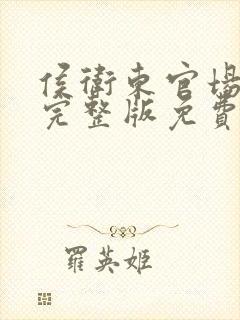 侯衛東官場
完整版免費
羅英姬